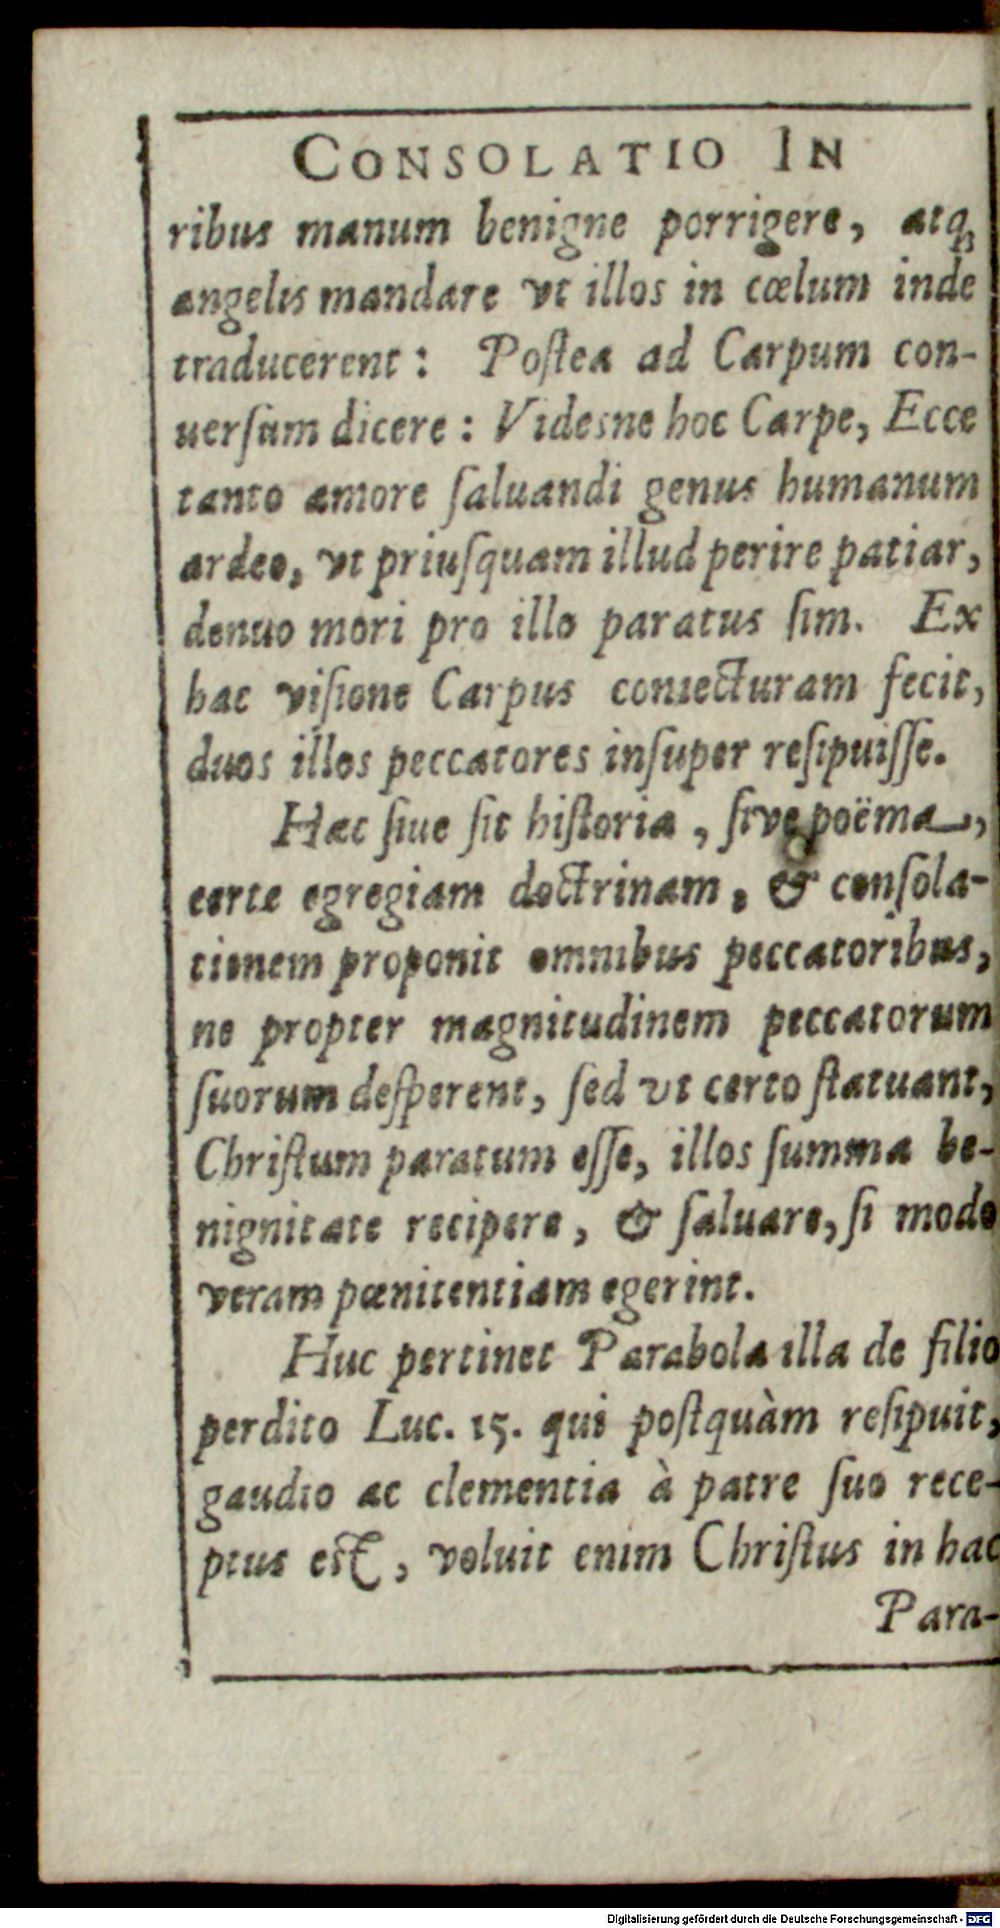 CONSOLATIO IN
ribus manum benigne porrigere, atq́;
angelis mandare vt illos in cœlum inde
traducerent: Poſtea ad Carpum con-
uerſum dicere: Videsne hoc Carpe, Ecce
tanto amore ſaluandi genus humanum
ardeo, vt priuſquam illud perire patiar,
denuo mori pro illo paratus ſim. Ex
hac viſione Carpus coniecturam fecit,
duos illos peccatores inſuper reſipuiſſe.
Hæc ſiue ſit hiſtoria, ſive poëma,
certe egregiam doctrinam, & conſola-
tionem proponit omnibus peccatoribus,
ne propter magnitudinem peccatorum
ſuorum deſperent, ſed vt certo ſtatuant,
Chriſtum paratum eſſe, illos ſumma be-
nignitate recipere, & ſaluare, ſi modo
veram pœnitentiam egerint.
Huc pertinet Parabola illa de filio
perdito Luc. 15. qui poſtquàm reſipuit,
gaudio ac clementia à patre ſuo rece-
ptus eſt, voluit enim Chriſtus in hac
Para-
Digitalisierung gefördert durch die Deutsche Forschungsgemeinschaft - DFG